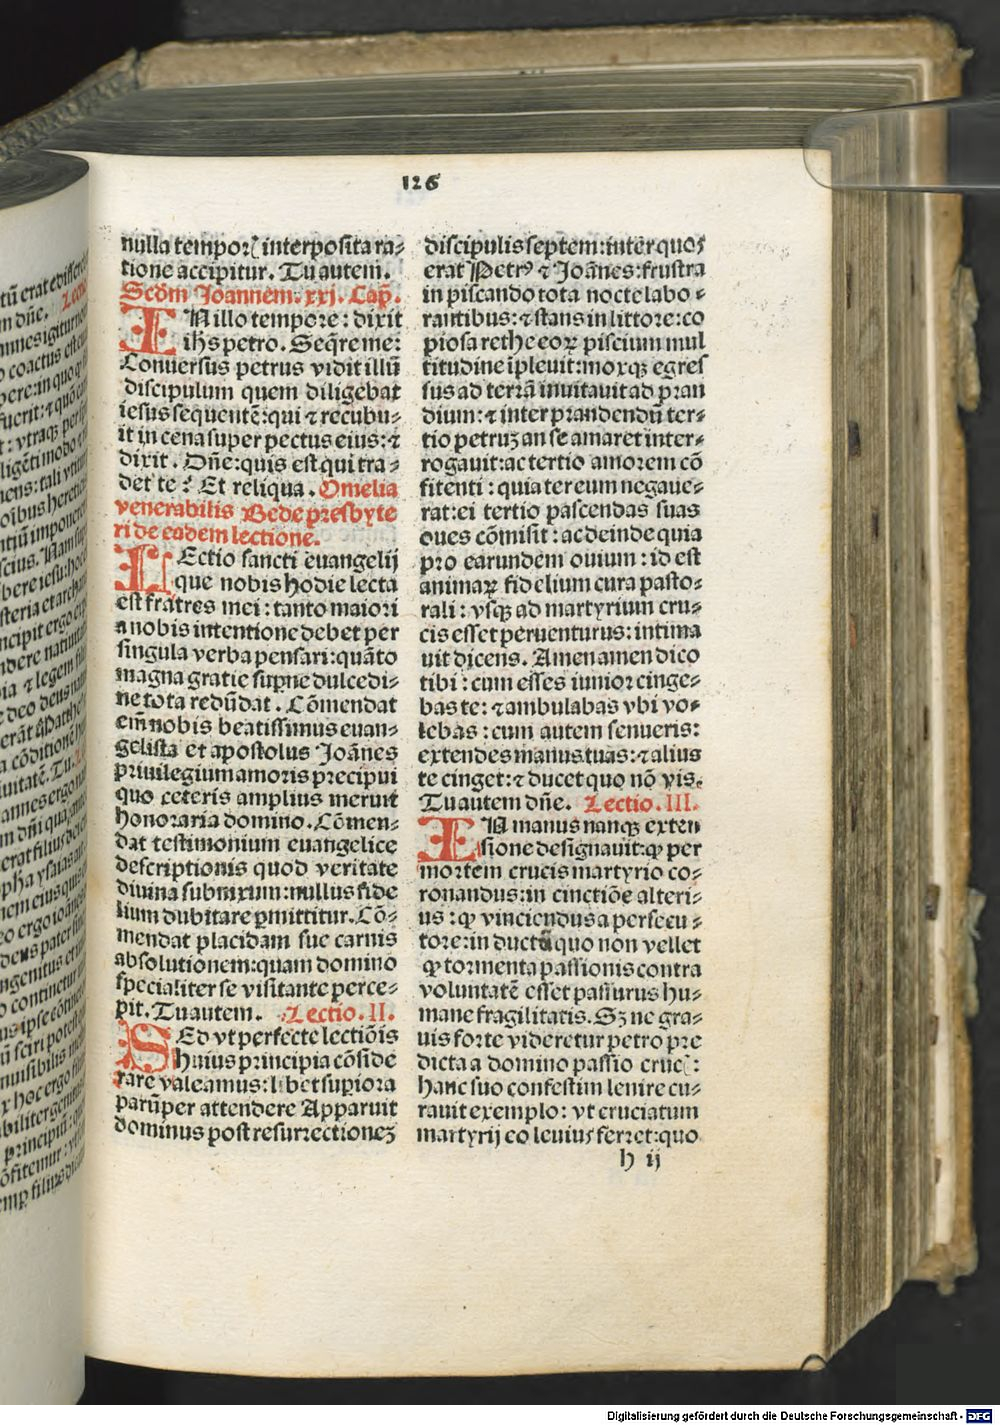 126
nulla temporꝭ interposita ra⸗
tione accipitur. Tu autem.
Scd̄m Joannem. xxj. Cap̄.
IN illo tempore: dixit
ihs petro. Seq̄re me:
Conuersus petrus vidit illū
discipulum quem diligebat
iesus sequentē: qui ⁊ recubu⸗
it in cena super pectus eius: ⁊
dixit. Dn̄e: quis est qui tra⸗
det te? Et reliqua. Omelia
venerabilis Bede presbyte
ri de eadem lectione.
LEctio sancti euangelij
que nobis hodie lecta
est fratres mei: tanto maiori
a nobis intentione debet per
singula verba pensari: quāto
magna gratie supͥne dulcedi⸗
ne tota redūdat. Cōmendat
em̄ nobis beatissimus euan⸗
gelista et apostolus Joānes
priuilegium amoris precipui
quo ceteris amplius meruit
honoraria domino. Cōmen⸗
dat testimonium euangelice
descriptionis quod veritate
diuina subnixum: nullus fide
lium dubitare ꝑmittitur. Cō⸗
mendat placidam sue carnis
absolutionem: quam domino
specialiter se visitante perce⸗
pit. Tu autem. Lectio. II.
SEd vt perfecte lectiōis
huius principia cōside
rare valeamus: libet suꝑiora
parūper attendere Apparuit
dominus post resurrectioneꝫ
discipulis septem: inter quos
erat Petrꝰ ⁊ Joānes: frustra
in piscando tota nocte labo⸗
rantibus: ⁊ stans in littore: co
piosa rethe eoꝝ piscium mul
titudine īpleuit: moxqꝫ egres
sus ad terrā inuitauit ad pran
dium: ⁊ inter prandendū ter⸗
tio petruꝫ an se amaret inter⸗
rogauit: ac tertio amorem cō
fitenti: quia ter eum negaue⸗
rat: ei tertio pascendas suas
oues cōmisit: ac deinde quia
pro earundem ouium: id est
animaꝝ fidelium cura pasto⸗
rali: vsqꝫ ad martyrium cru⸗
cis esset peruenturus: intima
uit dicens. Amen amen dico
tibi: cum esses iunior cinge⸗
bas te: ⁊ ambulabas vbi vo⸗
lebas: cum autem senueris:
extendes manus tuas: ⁊ alius
te cinget: ⁊ ducet quo nō vis.
Tu autem dn̄e. Lectio. III.
IN manus nanqꝫ exten
sione designauit: ꝙ per
mortem crucis martyrio co⸗
ronandus: in cinctiōe alteri⸗
us: ꝙ vinciendus a persecu⸗
tore: in ductū quo non vellet
ꝙ tormenta passionis contra
voluntatē esset passurus hu⸗
mane fragilitatis. Sꝫ ne gra⸗
uis forte videretur petro pre
dicta a domino passio crucꝭ:
hanc suo confestim lenire cu⸗
rauit exemplo: vt cruciatum
martyrij eo leuius ferret: quo
h ij
Digitalisierung gefördert durch die Deutsche Forschungsgemeinschaft - DFG